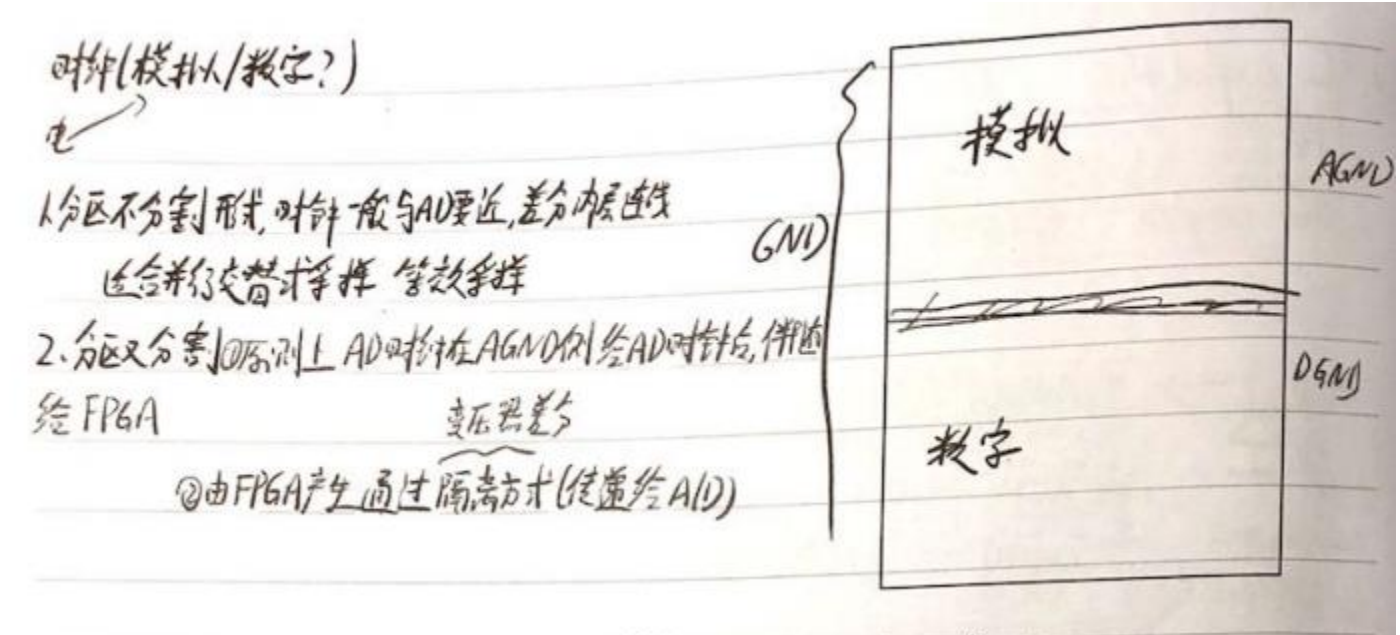 时钟(模拟/数字?)
电
1.分区不分割形式,时钟一般与AD要近,差分内层连线
适合并行交替式采样 等效采样
2.分区又分割①原则上 AD时钟在AGND侧给AD时钟后,伴随
给FPGA
变压器差分
②由FPGA产生通过隔离方式(传递给A/D)
模拟
AGND
GND
DGND
数字